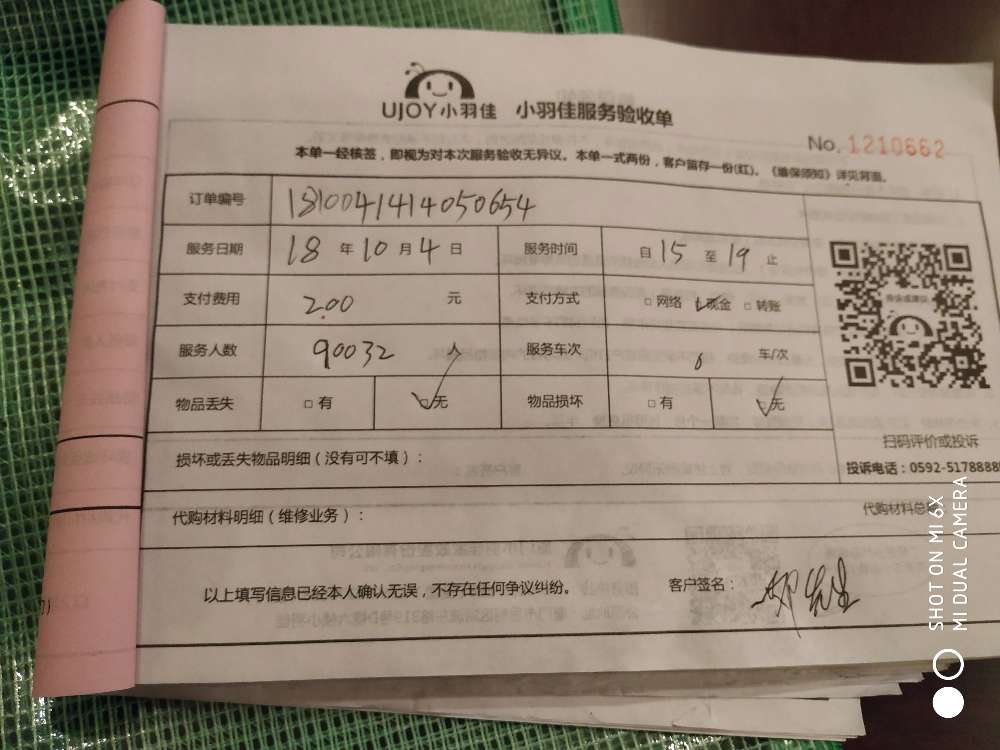 UJOY小羽佳 小羽佳服务验收单
No. 1210662
本单一经核签，即视为对本次服务验收无异议。本单一式两份，客户留存一份(红)。《维保须知》详见背面。
订单编号 1810041414050654
服务日期 18 年 10 月 4 日 服务时间 自 15 至 19 止
支付费用 200 元 支付方式 □ 网络 □ 现金 □ 转账
服务人数 90032 人 服务车次 车/次
物品丢失 □ 有 ☑ 无 物品损坏 □ 有 ☑ 无
扫码评价或投诉
投诉电话：0592-5178888
损坏或丢失物品明细（没有可不填）：
代购材料明细（维修业务）： 代购材料总
以上填写信息已经本人确认无误，不存在任何争议纠纷。 客户签名： 先生
SHOT ON MI 6X
MI DUAL CAMERA